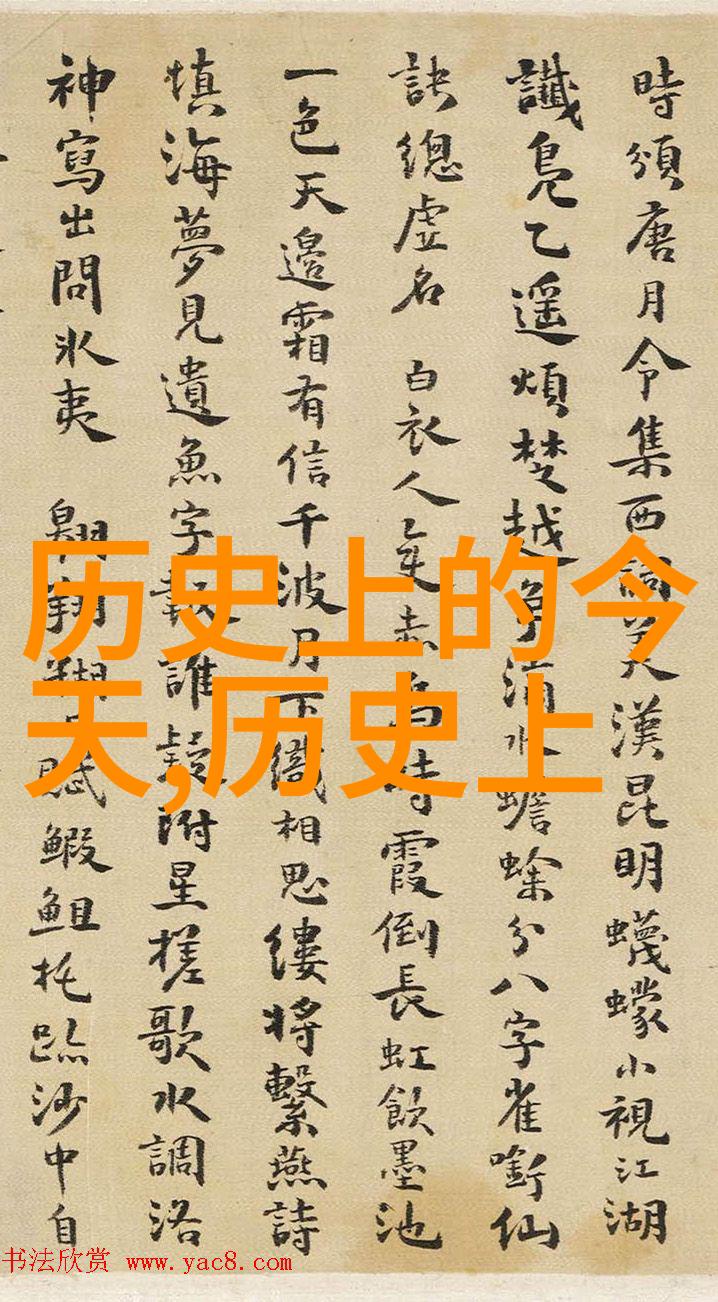 時頒唐月令集西詞美漢昆明蠛蠓小視江湖
讖鳧乙遥煩楚越爭滴水蟾蜍分八字雀銜仙
訣總虛名 白衣人 時霞倒長虹飲墨池
一色天邊霜有信千波月下織相思縷將繫燕詩
填海夢見遺魚字報誰疑附星槎歌水調洛
神寫出問氷夷 翱翔 賦鰕䱉托跡沙中自
历史上的今
天,历史上
书法欣赏 www.yac8.com